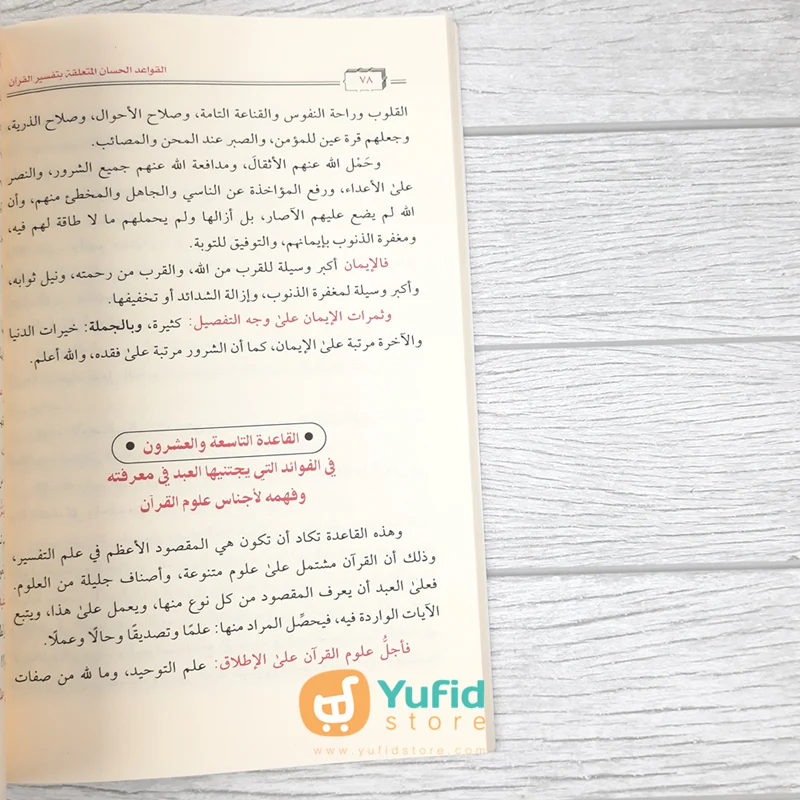 القواعد الحسان المتعلقة بتفسير القرآن
٧٨
القلوب وراحة النفوس والقناعة التامة، وصلاح الأحوال، وصلاح الذرية،
وجعلهم قرة عين للمؤمن، والصبر عند المحن والمصائب.
وحَمْل الله عنهم الأثقالَ، ومدافعة الله عنهم جميع الشرور، والنصر
علىٰ الأعداء، ورفع المؤاخذة عن الناسي والجاهل والمخطئ منهم، وأن
الله لم يضع عليهم الآصار، بل أزالها ولم يحملهم ما لا طاقة لهم فيه،
ومغفرة الذنوب بإيمانهم، والتوفيق للتوبة.
فالإيمان أكبر وسيلة للقرب من الله، والقرب من رحمته، ونيل ثوابه،
وأكبر وسيلة لمغفرة الذنوب، وإزالة الشدائد أو تخفيفها.
وثمرات الإيمان علىٰ وجه التفصيل: كثيرة، وبالجملة: خيرات الدنيا
والآخرة مرتبة علىٰ الإيمان، كما أن الشرور مرتبة علىٰ فقده، والله أعلم.
• القاعدة التاسعة والعشرون •
في الفوائد التي يجتنيها العبد في معرفته
وفهمه لأجناس علوم القرآن
وهذه القاعدة تكاد أن تكون هي المقصود الأعظم في علم التفسير،
وذلك أن القرآن مشتمل علىٰ علوم متنوعة، وأصناف جليلة من العلوم.
فعلىٰ العبد أن يعرف المقصود من كل نوع منها، ويعمل علىٰ هذا، ويتبع
الآيات الواردة فيه، فيحصِّل المراد منها: علمًا وتصديقًا وحالًا وعملًا.
فأجلُّ علوم القرآن علىٰ الإطلاق: علم التوحيد، وما لله من صفات
Yufid
store
www.yufidstore.com